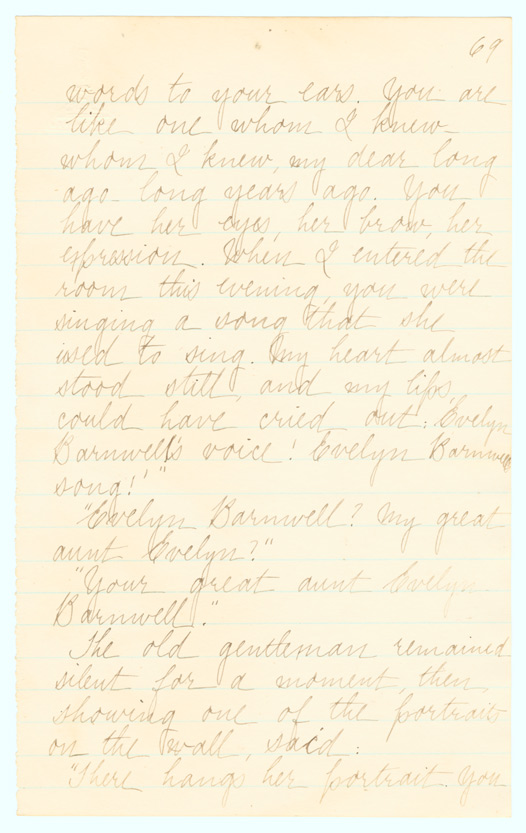 69
words to your ears. You are
like one whom I knew–
whom I knew, my dear long
ago– long years ago. You
have her eyes, her brow, her
expression. When I entered the
room this evening, you were
singing a song that she
used to sing. My heart almost
stood still, and my lips
could have cried out: 'Evelyn
Barnwell's voice! Evelyn Barnwell's
song!'"
"Evelyn Barnwell? My great
aunt Evelyn?"
"Your great aunt Evelyn
Barnwell."
The old gentleman remained
silent for a moment, then
showing one of the portraits
on the wall, said:
"There hangs her portrait. You